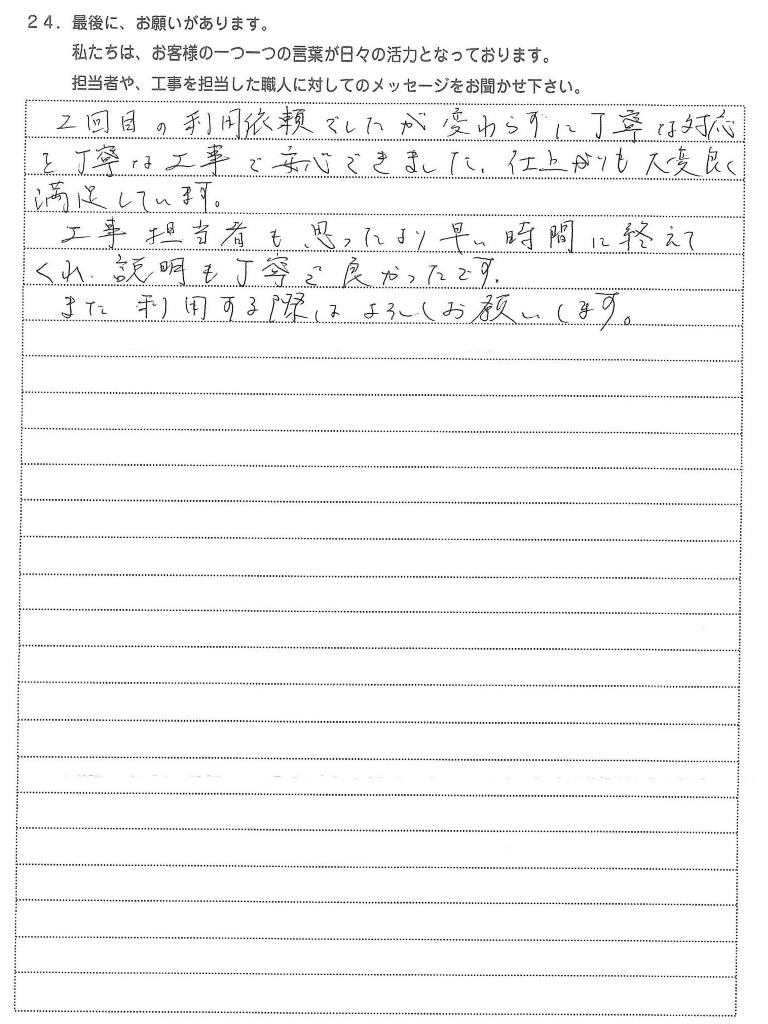 24．最後に、お願いがあります。
私たちは、お客様の一つ一つの言葉が日々の活力となっております。
担当者や、工事を担当した職人に対してのメッセージをお聞かせ下さい。
2回目の利用依頼でしたが変わらずに丁寧な対応
と丁寧な工事で安心できました。仕上がりも大変良く
満足しています。
工事担当者も思ったより早い時間に終えて
くれ、説明も丁寧で良かったです。
また利用する際はよろしくお願いします。